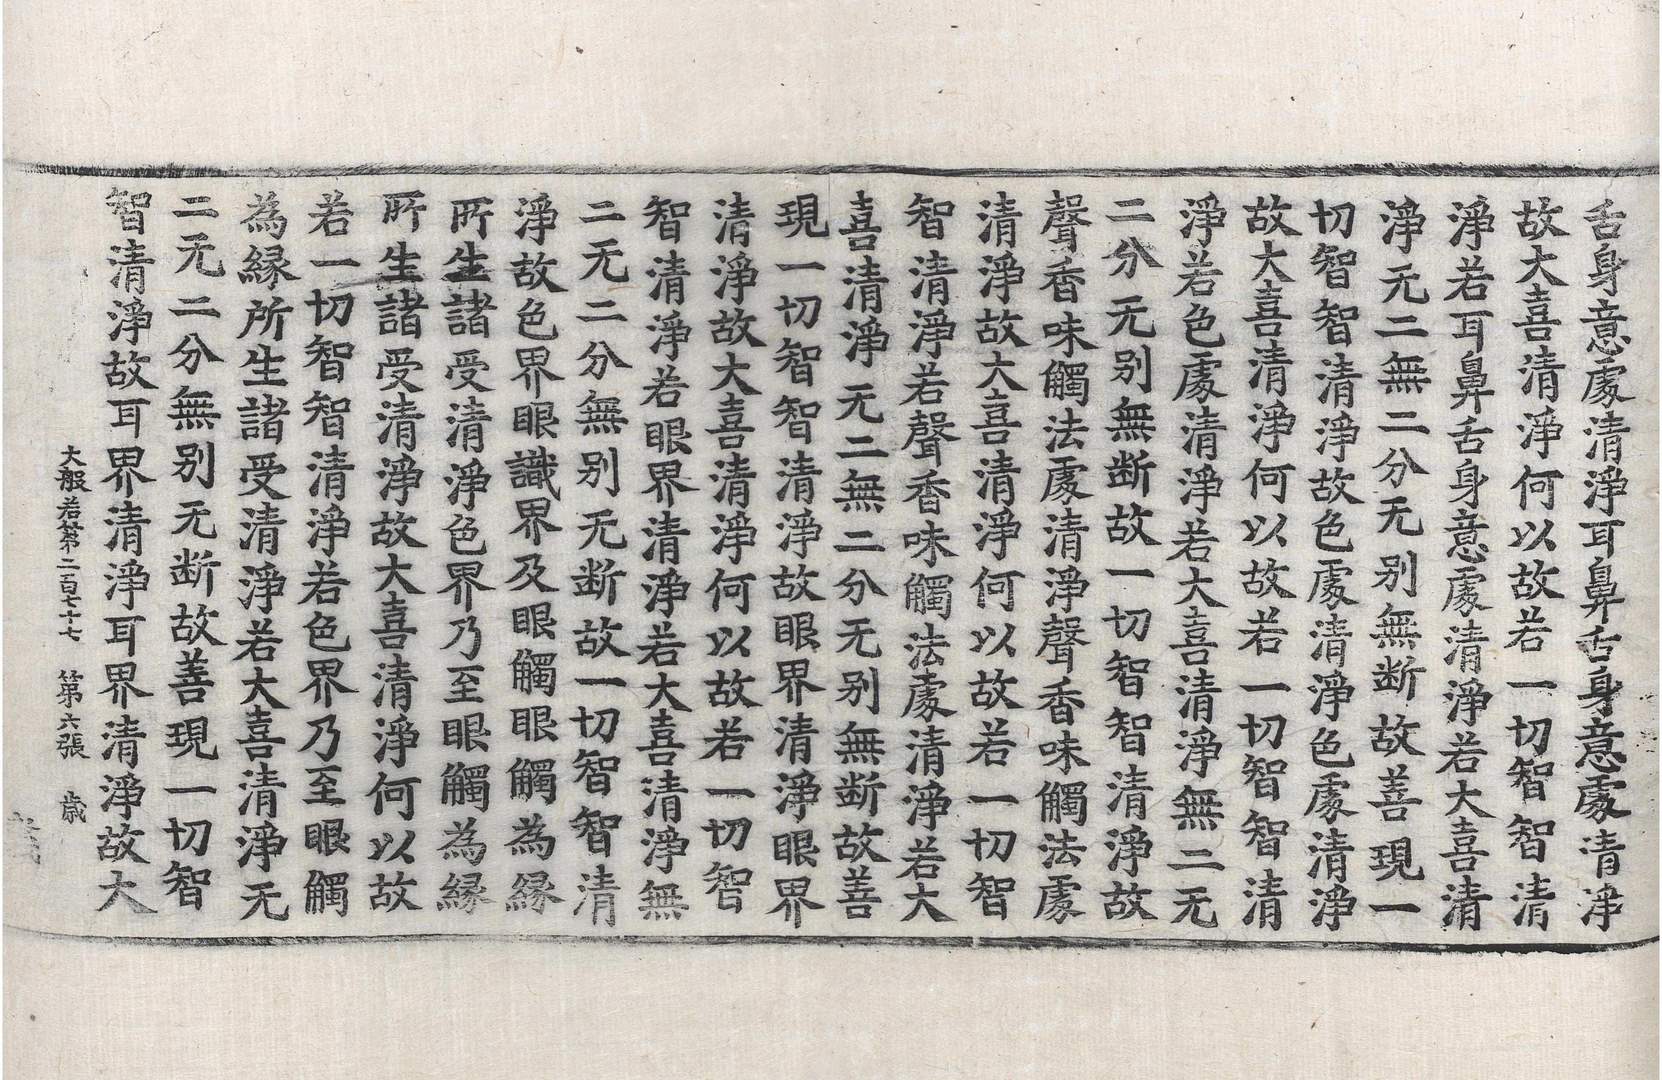 舌身意處清淨耳鼻舌身意處清淨
故大喜清淨何以故若一切智智清
淨若耳鼻舌身意處清淨若大喜清
淨无二無二分无別無断故善現一
切智智清淨故色處清淨色處清淨
故大喜清淨何以故若一切智智清
淨若色處清淨若大喜清淨無二无
二分无別無断故一切智智清淨故
聲香味觸法處清淨聲香味觸法處
清淨故大喜清淨何以故若一切智
智清淨若聲香味觸法處清淨若大
喜清淨无二無二分无別無断故善
現一切智智清淨故眼界清淨眼界
清淨故大喜清淨何以故若一切智
智清淨若眼界清淨若大喜清淨無
二无二分無別无断故一切智智清
淨故色界眼識界及眼觸眼觸為緣
所生諸受清淨色界乃至眼觸為緣
所生諸受清淨故大喜清淨何以故
若一切智智清淨若色界乃至眼觸
為緣所生諸受清淨若大喜清淨无
二无二分無別无断故善現一切智
智清淨故耳界清淨耳界清淨故大
大般若第二百七十七 第六張 歳